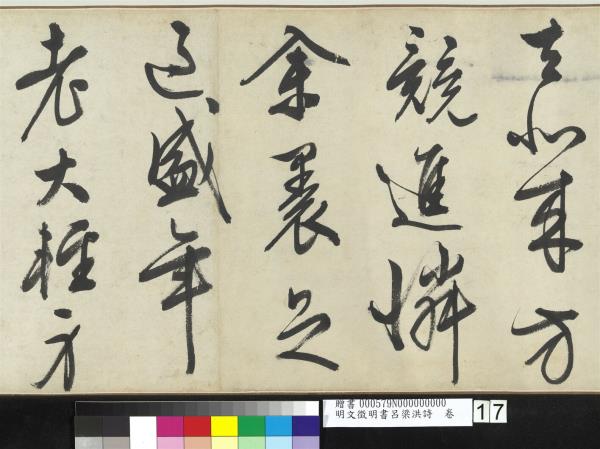 北來方
競進憐
余裹足
過盛年
老大
贈書 000579N000000000
明文徵明書呂梁洪詩 卷
17